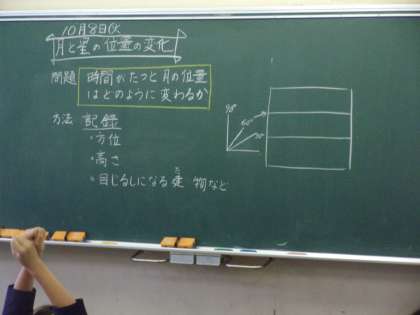 10月8日(火
月と星の位置の変化
問題 時間がたつと月の位置
はどのように変わるか
方法 記録
・方位
・高さ
・目じるしになる建物など
90°